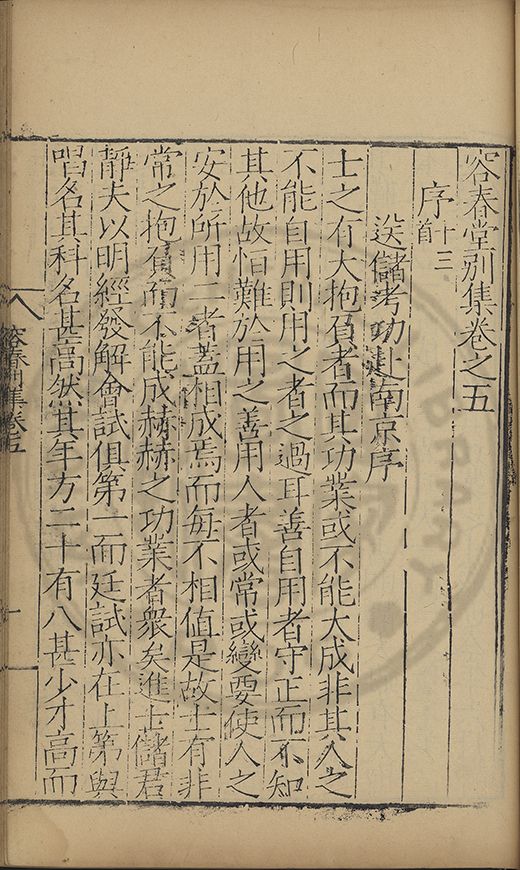 容春堂別集卷之五
序十三首
送儲考功赴南京序
士之有大抱負者而其功業或不能大成非其人之
不能自用則用之者之過耳善自用者守正而不知
其他故恒難於用之善用人者或常或變要使人之
安於所用二者蓋相成焉而每不相值是故士有非
常之抱負而不能成赫赫之功業者衆矣進士儲君
靜夫以明經發解會試俱第一而廷試亦在上第與
唱名其科名甚高然其年方二十有八甚少才高而
容春別集卷五
一